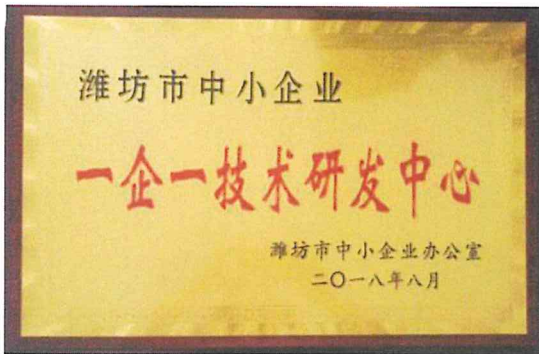 潍坊市中小企业
一企一技术研发中心
潍坊市中小企业办公室
二〇一八年八月